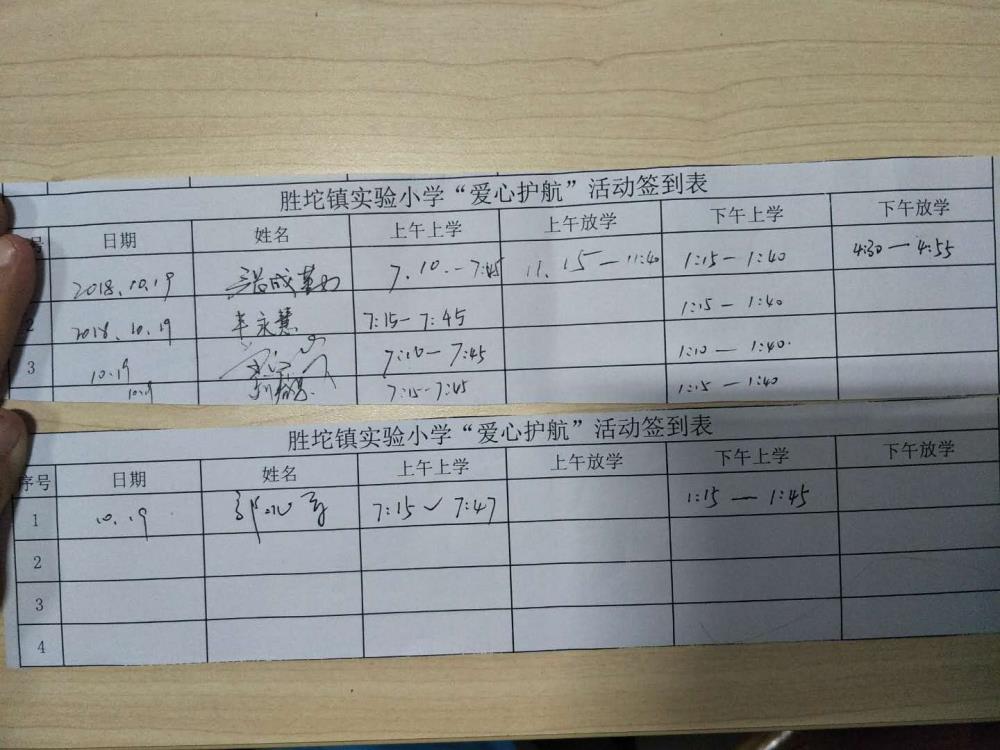 胜坨镇实验小学“爱心护航”活动签到表
号 日期 姓名 上午上学 上午放学 下午上学 下午放学
2018.10.19 7.10.-7:45 11.15-11:40 1:15-1:40 4:30-4:55
2 2018.10.19 7:15-7:45 1:15-1:40
3 10.19 7:10-7:45 1:10-1:40.
10.19 7:15-7:45 1:15-1:40
胜坨镇实验小学“爱心护航”活动签到表
序号 日期 姓名 上午上学 上午放学 下午上学 下午放学
1 10.19 7:15~7:47 1:15-1:45
2
3
4